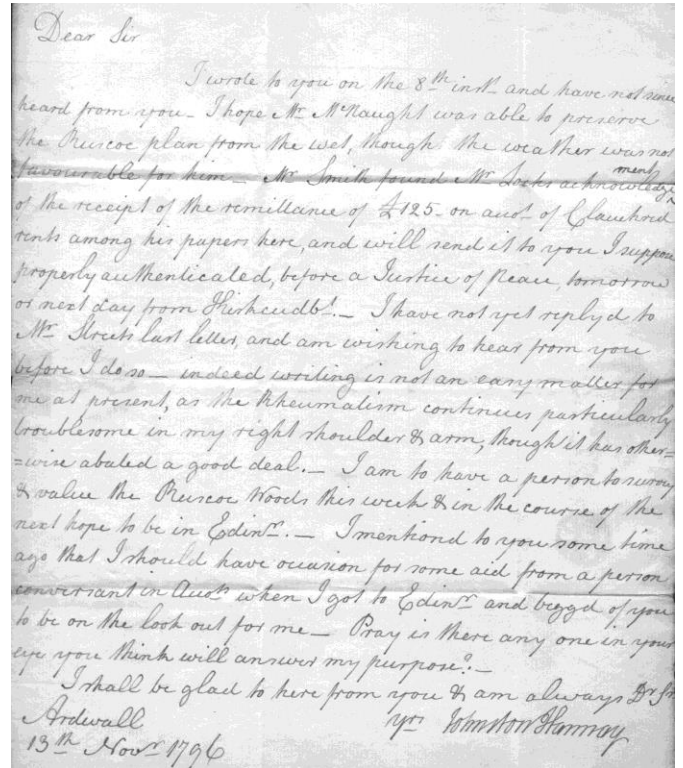 Dear Sir
I wrote to you on the 8th inst. and have not since
heard from you - I hope Mr McNaught was able to preserve
the Ruscoe plan from the wet, though the weather was not
favourable for him - Mr Smith found Mr Locks acknowledgement
of the receipt of the remittance of £125 - on accot. of Clauchred
rents among his papers here, and will send it to you I suppose
properly authenticated, before a Justice of Peace, tomorrow
or next day from Kirkcudbt. - I have not yet replyd to
Mr Streets last letter, and am wishing to hear from you
before I do so - indeed writing is not an easy matter for
me at present, as the Rheumatism continues particularly
troublesome in my right shoulder & arm, though it has other=
=wise abated a good deal. - I am to have a person to survey
& value the Ruscoe Woods this week & in the course of the
next hope to be in Edinr. - I mentiond to you some time
ago that I should have occasion for some aid from a person
conversant in Accots when I got to Edinr and beggd of you
to be on the look out for me - Pray is there any one in your
eye you think will answer my purpose? -
I shall be glad to here from you & am always Dr Sir
Ardwall yrs Johnston Hannay
13th Novr 1796